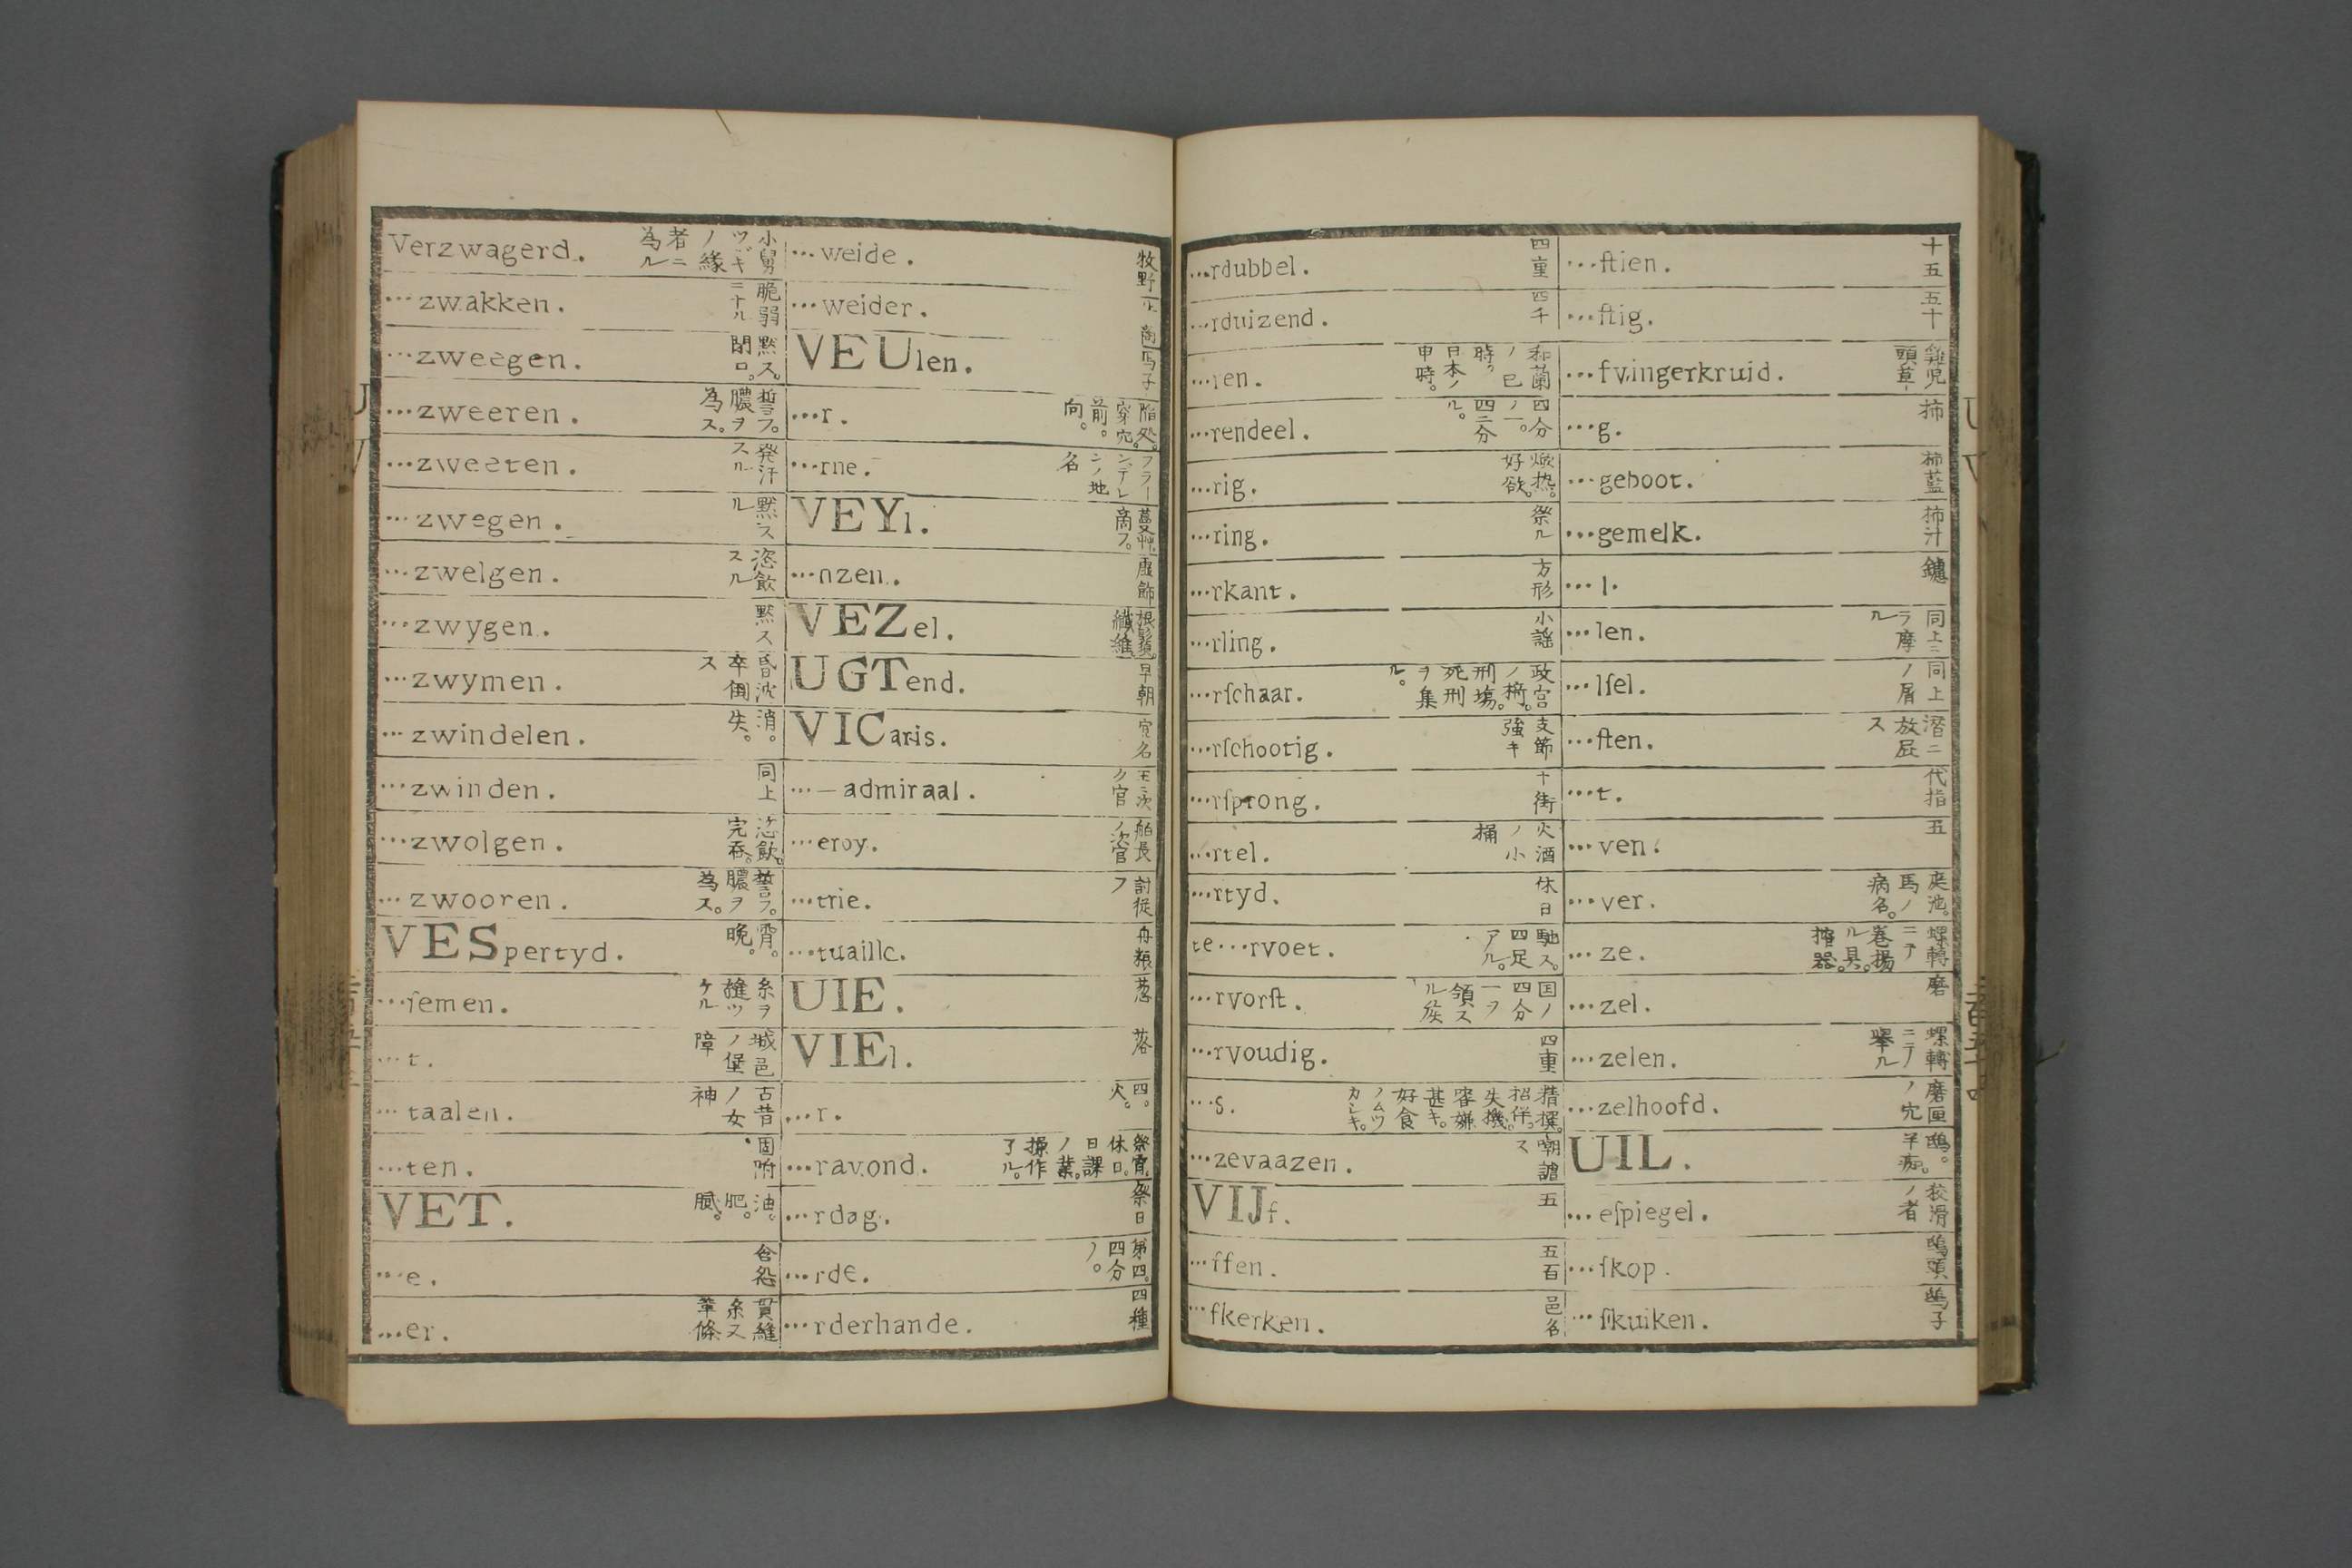 Verzwagerd. 小舅ツヾキノ縁者ニ為ル
…zwakken. 脆弱ニナル
…zweegen. 黙ス。閉口。
…zweeren. 誓フ。膿ヲ為ス。
…zweeten. 発汗スル
…zwegen. 黙スル
…zwelgen. 恣飲スル
…zwygen. 黙ス
…zwymen. 昏沈卒倒ス
…zwindelen. 消。失。
…zwinden. 同上
…zwolgen. 恣飲。完呑。
…zwooren. 誓フ。膿ヲ為ス。
VESpertyd. 霄。晩。
…ſemen. 糸ヲ
…t. 城邑ノ堡障
…taalen. 古昔ノ女神
…ten. 固
VET. 油。肥。膩。
…e.
…er.
…weide. 牧野
…weider.
VEUlen. 馬子
…r. 穿穴。前。向。
…rne. フラーンデレンノ地名
VEYl.
…nzen. 虚飾
VEZel. 根鬚。繊維
UGTend. 早朝
VICaris. 官名
…—admiraal.
…eroy.
…trie. 討従フ
…tuaillc.
UIE. 葱
VIEl. 落
…r. 四。火。
…ravond. 祭霄。休日。日課ノ業。操作了ル。
…rdag. 祭日
…rde. 第四。四分ノ。
…rderhande. 四種
…rdubbel. 四重
…rduizend. 四千
…ren. 和蘭ノ巳時。日本ノ申時。
…rendeel. 四分ノ一。四ニ分ル。
…rig. 好欲。
…ring. 祭ル
…rkant. 方形
…rling. 小謡
…rſchaar. 刑場。死刑ヲ集ル。
…rſchootig. 支節強キ
…rſprong. 十街
…rtel. 火酒ノ小桶
…rtyd. 休日
te…rvoet. 馳ス。四足アル。
…rvorſt. 国ノ四分一ヲ領スル侯
…rvoudig. 四重
…s.
…zevaazen. 嘲謔ス
VIJf. 五
…ffen. 五百
…fkerken. 邑名
…ftien. 十五
…ftig. 五十
…fvingerkruid.
…g. 柿
…geboot. 柿藍
…gemelk. 柿汁
…l. 鑢
…len. 同上ニテ摩ル
…lſel. 同上ノ屑
…ſten. 潜ニ放屁ス
…t. 代指
…ven. 五
…ver. 馬ノ病名。
…ze. 螺轉ニテ巻揚ル具。
…zel. 磨
…zelen. 螺轉ニテ擧ル
…zelhoofd. 磨匣ノ穴
UIL. 鴟。
…eſpiegel. 狡滑ノ者
…ſkop. 鴟頭
…ſkuiken. 鴟子